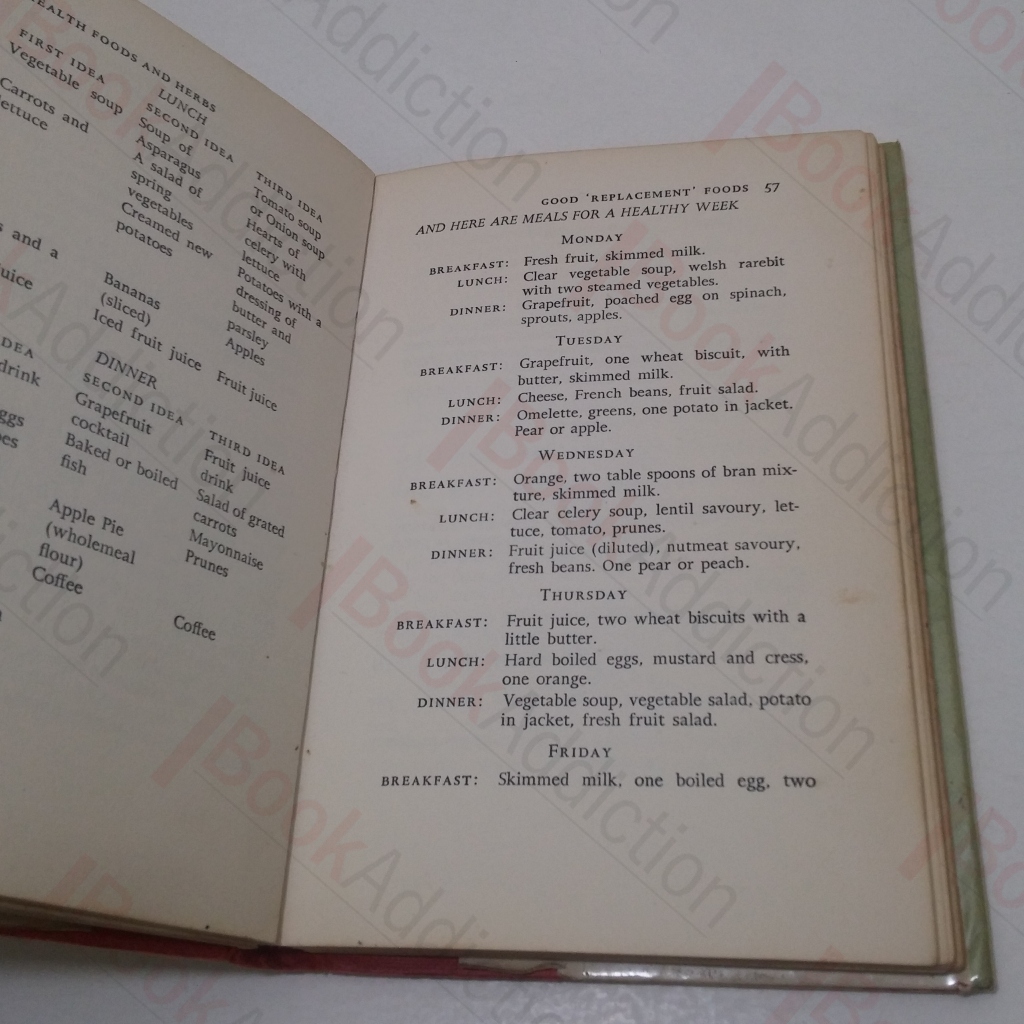 HEALTH FOODS AND HERBS
LUNCH
FIRST IDEA
Vegetable soup
Carrots and
lettuce
s and a
juice
SECOND IDEA
Soup of
Asparagus
A salad of
spring
vegetables
Creamed new
potatoes
Bananas
(sliced)
Iced fruit juice
THIRD IDEA
Tomato soup
or Onion soup
Hearts of
celery with
lettuce
Potatoes with a
dressing of
butter and
parsley
Apples
Fruit juice
DINNER
IDEA
drink
eggs
SECOND IDEA
Grapefruit
cocktail
Baked or boiled
fish
Apple Pie
(wholemeal
flour)
Coffee
THIRD IDEA
Fruit juice
drink
Salad of grated
carrots
Mayonnaise
Prunes
Coffee
GOOD 'REPLACEMENT' FOODS 57
AND HERE ARE MEALS FOR A HEALTHY WEEK
MONDAY
BREAKFAST: Fresh fruit, skimmed milk.
LUNCH: Clear vegetable soup, welsh rarebit
with two steamed vegetables.
DINNER: Grapefruit, poached egg on spinach,
sprouts, apples.
TUESDAY
BREAKFAST: Grapefruit, one wheat biscuit, with
butter, skimmed milk.
LUNCH: Cheese, French beans, fruit salad.
DINNER: Omelette, greens, one potato in jacket.
Pear or apple.
WEDNESDAY
BREAKFAST: Orange, two table spoons of bran mix-
ture, skimmed milk.
LUNCH: Clear celery soup, lentil savoury, let-
tuce, tomato, prunes.
DINNER: Fruit juice (diluted), nutmeat savoury,
fresh beans. One pear or peach.
THURSDAY
BREAKFAST: Fruit juice, two wheat biscuits with a
little butter.
LUNCH: Hard boiled eggs, mustard and cress,
one orange.
DINNER: Vegetable soup, vegetable salad, potato
in jacket, fresh fruit salad.
FRIDAY
BREAKFAST: Skimmed milk, one boiled egg, two
BookAddiction